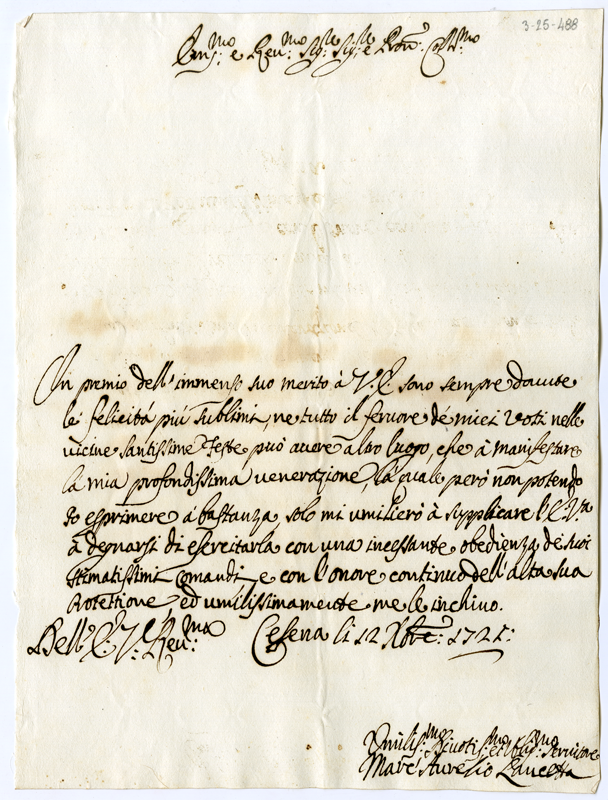 3-25-488
Em.mo e Reu.mo Sig.r Sig.r e Pron. Col.mo
In premio dell'immenso suo merito à V. E. sono sempre douute
le felicità più sublimi, ne tutto il feruore de miei Voti nelle
uicine santissime Feste può auere altro luogo, che à manifestare
la mia profondissima uenerazione, la quale però non potendo
Io esprimere à bastanza, solo mi umilierò à supplicare l'E. V.ra
à degnarsi di esercitarla con una incessante obedienza de suoi
stimatissimi Comandi, e con l'onore continuo dell'alta sua
Protettione, ed umilissimamente me le inchino.
Dell'E. V. Reu.ma Cesena li 12 Xbre: 1721:
Umilis.mo Diuotis.mo et Oblig.mo Seruitore
Marc'Aurelio